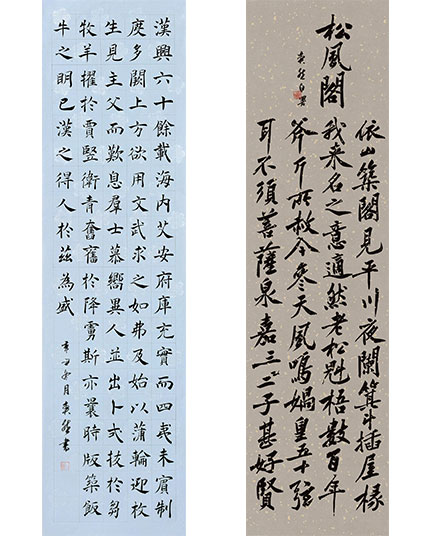 漢興六十餘載海内艾安府庫充實而四夷未賓制
度多闕上方欲用文武求之如弗及始以蒲輪迎枚
生見主父而歎息群士慕嚮異人並出卜式拔於芻
牧羊擢於賈豎衛青奮舊於降虜斯亦曩時版築飯
牛之明已漢之得人於茲為盛
辛丑月書
松風閣
依山築閣見平川夜闌箕斗插屋椽
我来名之意適然老松魁梧數百年
斧斤所赦今參天風鳴媧皇五十弦
耳不須菩薩泉嘉三二子甚好賢